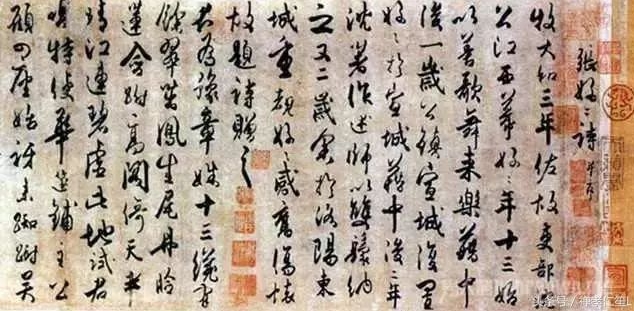 張好〻詩 并序
牧大和三年佐故吏部
公江西幕好〻年十三始
以善歌舞來樂籍中
後一歲公鎮宣城復置
好〻於宣城籍中後二年
沈著作述師以雙鬟納
之又二歲余於洛陽東
城重覩好〻感舊傷懷
故題詩贈之
君為豫章姝十三纔有
餘翠茁鳳生尾丹臉
蓮含跗高閣倚天半
晴江連碧虛此地試君
唱特使華筵鋪主公
顧四座始訝來踟躕吳
头条号 /